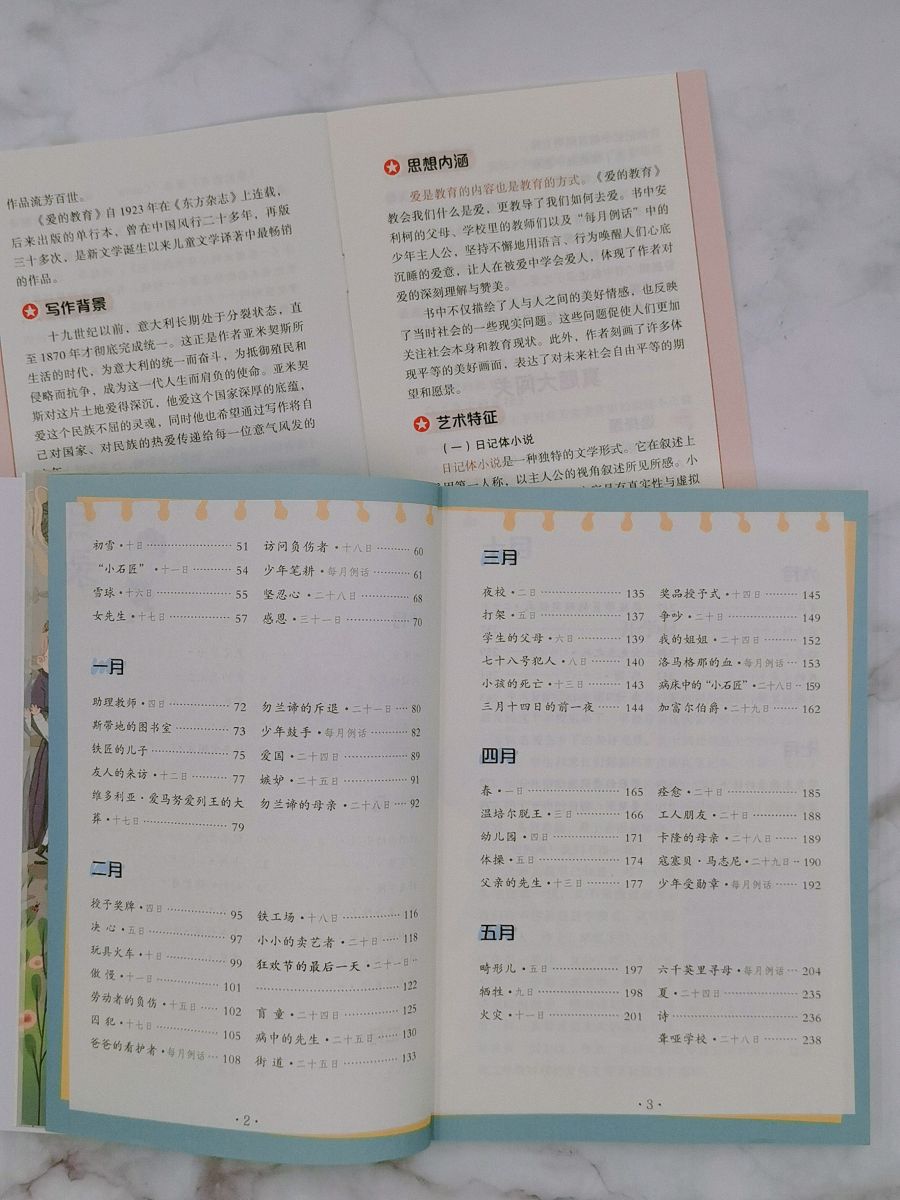 作品流芳百世。
《爱的教育》自 1923 年在《东方杂志》上连载，
后来出版的单行本，曾在中国风行二十多年，再版
三十多次，是新文学诞生以来儿童文学译著中最畅销
的作品。
写作背景
十九世纪以前，意大利长期处于分裂状态，直
至 1870 年才彻底完成统一。这正是作者亚米契斯所
生活的时代，为意大利的统一而奋斗，为抵御殖民和
侵略而抗争，成为这一代人生而肩负的使命。亚米契
斯对这片土地爱得深沉，他爱这个国家深厚的底蕴，
爱这个民族不屈的灵魂，同时他也希望通过写作将自
己对国家、对民族的热爱传递给每一位意气风发的
思想内涵
爱是教育的内容也是教育的方式。《爱的教育》
教会我们什么是爱，更教导了我们如何去爱。书中安
利柯的父母、学校里的教师们以及“每月例话”中的
少年主人公，坚持不懈地用语言、行为唤醒人们心底
沉睡的爱意，让人在被爱中学会爱人，体现了作者对
爱的深刻理解与赞美。
书中不仅描绘了人与人之间的美好情感，也反映
了当时社会的一些现实问题。这些问题促使人们更加
关注社会本身和教育现状。此外，作者刻画了许多体
现平等的美好画面，表达了对未来社会自由平等的期
望和愿景。
艺术特征
（一）日记体小说
日记体小说是一种独特的文学形式。它在叙述上
用第一人称，以主人公的视角叙述所见所感。小
具有真实性与虚拟
初雪·十日 ………… 51
“小石匠”·十一日 ………… 54
雪球·十六日 ………… 55
女先生·十七日 ………… 57
访问负伤者·十八日 ………… 60
少年笔耕·每月例话 ………… 61
坚忍心·二十八日 ………… 68
感恩·三十一日 ………… 70
一月
助理教师·四日 ………… 72
斯带地的图书室 ………… 73
铁匠的儿子 ………… 75
友人的来访·十二日 ………… 77
维多利亚·爱马努爱列王的大
葬·十七日 ………… 79
勿兰谛的斥退·二十一日 … 80
少年鼓手·每月例话 ………… 82
爱国·二十四日 ………… 89
嫉妒·二十五日 ………… 91
勿兰谛的母亲·二十八日 … 92
二月
授予奖牌·四日 ………… 95
决心·五日 ………… 97
玩具火车·十日 ………… 99
傲慢·十一日 ………… 101
劳动者的负伤·十五日 …… 102
囚犯·十七日 ………… 105
爸爸的看护者·每月例话 … 108
铁工场·十八日 ………… 116
小小的卖艺者·二十日 …… 118
狂欢节的最后一天·二十一日
………… 122
盲童·二十四日 ………… 125
病中的先生·二十五日 …… 130
街道·二十五日 ………… 133
·2·
三月
夜校·二日 ………… 135
打架·五日 ………… 137
学生的父母·六日 ………… 139
七十八号犯人·八日 ……… 140
小孩的死亡·十三日 ……… 143
三月十四日的前一夜 …… 144
奖品授予式·十四日 ……… 145
争吵·二十日 ………… 149
我的姐姐·二十四日 ……… 152
洛马格那的血·每月例话 … 153
病床中的“小石匠”·二十八日 … 159
加富尔伯爵·二十九日 …… 162
四月
春·一日 ………… 165
温培尔脱王·三日 ………… 166
幼儿园·四日 ………… 171
体操·五日 ………… 174
父亲的先生·十三日 ……… 177
痊愈·二十日 ………… 185
工人朋友·二十日 ………… 188
卡隆的母亲·二十八日 …… 189
寇塞贝·马志尼·二十九日 … 190
少年受勋章·每月例话 …… 192
五月
畸形儿·五日 ………… 197
牺牲·九日 ………… 198
火灾·十一日 ………… 201
六千英里寻母·每月例话 … 204
夏·二十四日 ………… 235
诗 ………… 236
聋哑学校·二十八日 ……… 238
·3·